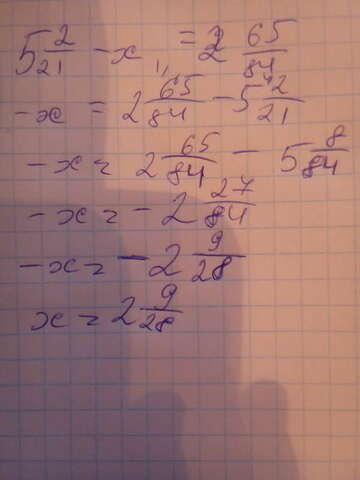 5 2/21 - x = 2 65/84
-x = 2 65/84 - 5 2/21
-x = 2 65/84 - 5 8/84
-x = -2 27/84
-x = -2 9/28
x = 2 9/28